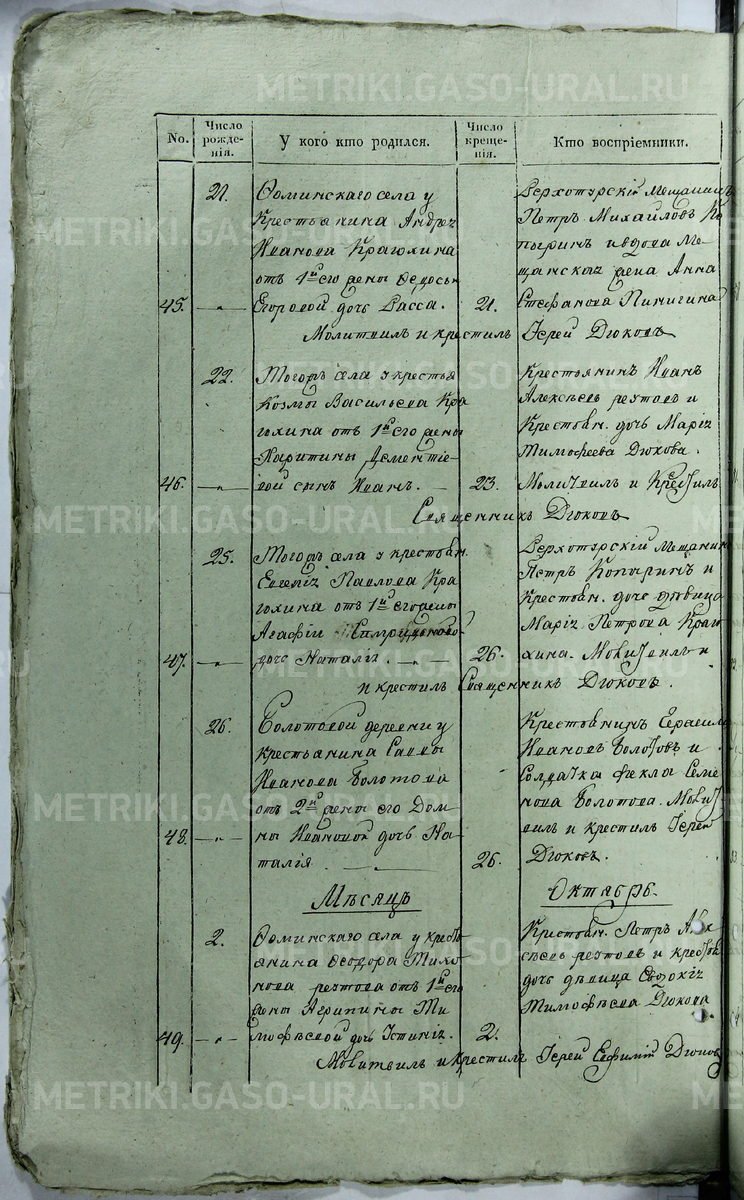 METRIKI.GASO-URAL.RU
No.
Число рожде-
нія.
У кого кто родился.
Число креще-
нія.
Кто воспріемники.
21.
Ѳоминскаго села у
Крестьянина Андрея
Иванова Крагюхина
отъ 1й его жены Ѳедосьи
45.
Егоровой дочь Васса.
21.
Верхотурскій Мещанинъ
Петръ Михайловъ Ко
пыринъ и вдова Ме
щанская жена Анна
Стефанова Пинигина
Молитвилъ и крестилъ Іерей Дюковъ
22.
Тогожъ села у крестья
Козмы Васильева Кра
гюхина отъ 1й его жены
Харитины Дементіе
46.
вой сынъ Иванъ.
23.
Крестьянинъ Иванъ
Алексѣевъ и
Крестьян. дочь Марія
Тимофеева Дюкова.
Молитвилъ и Крестилъ
Священникъ Дюковъ
25.
Тогожъ села у крестьян.
Павлова Кра
гюхина отъ 1й его жены
Агафіи
47.
дочь Наталія.
26.
Верхотурскій Мещанинъ
Петръ Копыринъ и
Крестьян. дочь дѣвица
Марія Петрова Краг
юхина. Молитвилъ и
и крестилъ Священникъ Дюковъ.
26.
Болотовой деревни у
крестьянина Саввы
Иванова Болотова
отъ 2й жены его Дом-
48.
ны Ивановой дочь На-
талія
26.
Крестьянинъ Герасимъ
Ивановъ Болотовъ и
Солдатка Фекла Семе
нова Болотова. Молит
вилъ и крестилъ Іерей
Дюковъ.
Мѣсяцъ
Октябрь.
2.
Ѳоминскаго села у кресть
янина Ѳеодора Тихо
нова отъ 1й его
жены Агрипины Ти
49.
мофѣевой дочь Устинія.
2.
Крестьян. Петръ Алек
сѣевъ и крестьян
дочь дѣвица Евдокія
Тимофѣева Дюкова
Молитвилъ и Крестилъ Іерей Евфимій Дюковъ